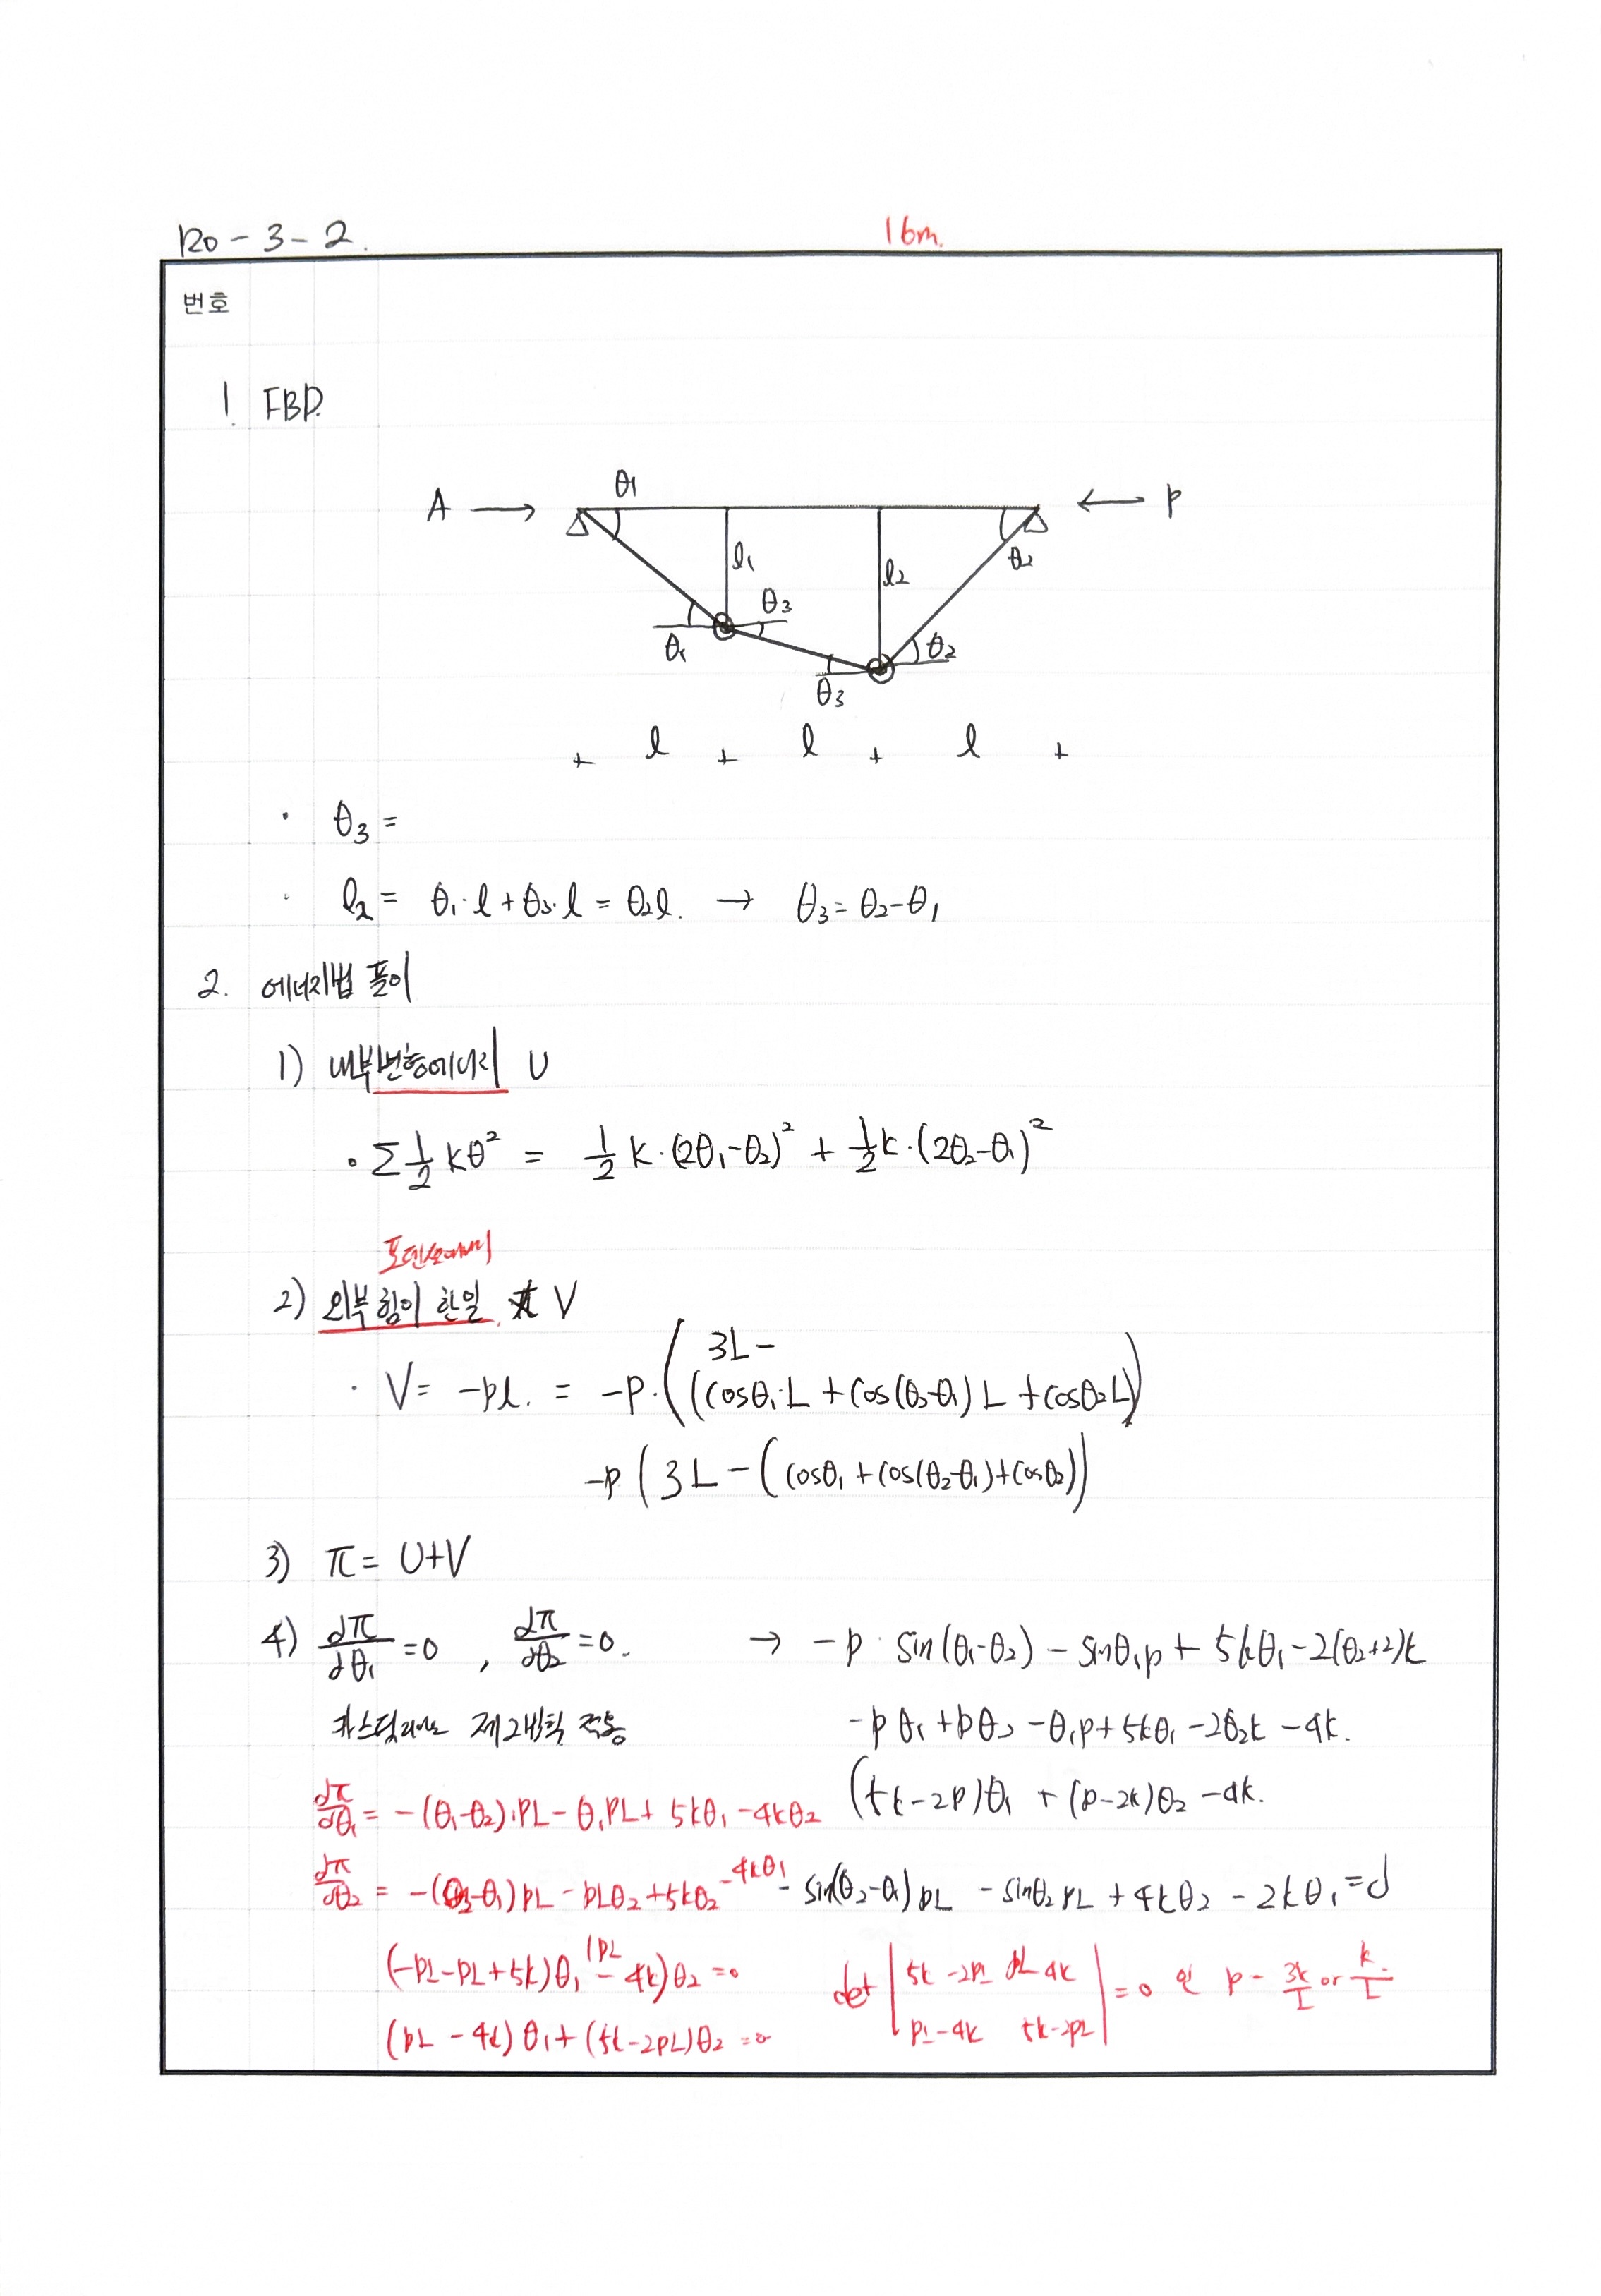 120 - 3 - 2.
16m.
번호
1. FBD.
θ1
A → ← P
l1 l2 θ2
θ1 θ3 θ3 θ2
+ l + l + l +
· θ3 =
· l2 = θ1·l + θ3·l = θ2l. → θ3 = θ2-θ1
2. 에너지법 풀이
1) 내부변형에너지 U
· Σ½kθ² = ½k·(2θ1-θ2)² + ½k·(2θ2-θ1)²
2) 외부 힘이 한일 V
3L -
· V = -pl. = -p·((cosθ1·L + cos(θ2-θ1)L + cosθ2L)
-p(3L-(cosθ1+cos(θ2-θ1)+cosθ2))
3) π = U+V
4) dπ/dθ1 = 0 , dπ/dθ2 = 0. → -p·sin(θ1-θ2) - sinθ1p + 5kθ1 - 2(θ2+2)k
카스틸리아노 제2법칙 적용 -pθ1 + pθ2 - θ1p + 5kθ1 - 2θ2k - 4k.
(5k-2p)θ1 + (p-2k)θ2 - 4k.
dπ/dθ1 = -(θ1-θ2)·PL - θ1PL + 5kθ1 - 4kθ2
dπ/dθ2 = -(θ2-θ1)pL - pLθ2 + 5kθ2 -4kθ1
- sin(θ2-θ1)pL - sinθ2pL + 4kθ2 - 2kθ1 = 0
(-pL-pL+5k)θ1 (pL - 4k)θ2 = 0
(pL - 4k)θ1 + (5k-2pL)θ2 = 0
det | 5k-2pL pL-4k | = 0 인 p = 3k/L or k/L
| pL-4k 5k-2pL |